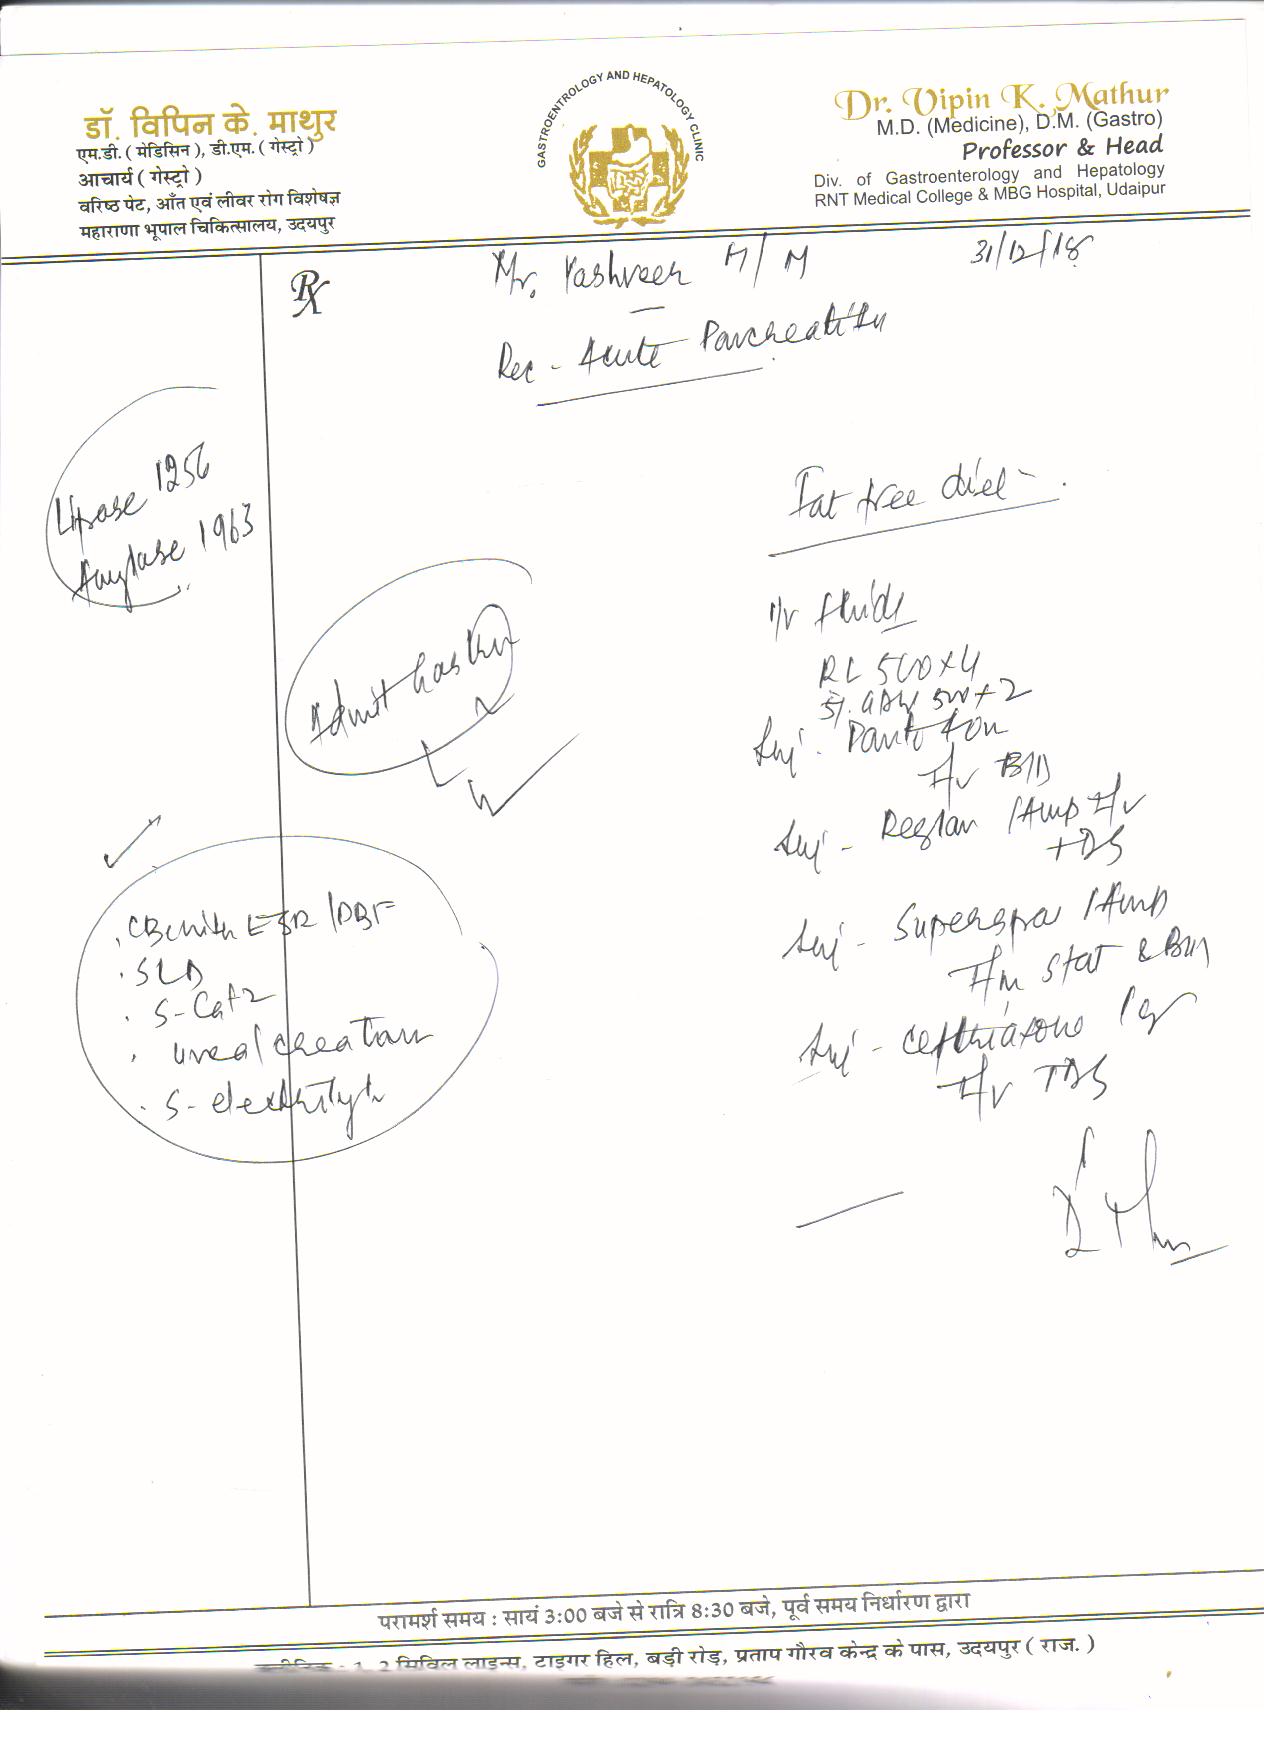 डॉ. विपिन के. माथुर
एम.डी. ( मेडिसिन ), डी.एम. ( गेस्ट्रो )
आचार्य ( गेस्ट्रो )
वरिष्ठ पेट, आँत एवं लीवर रोग विशेषज्ञ
महाराणा भूपाल चिकित्सालय, उदयपुर
GASTROENTROLOGY AND HEPATOLOGY CLINIC
Dr. Vipin K. Mathur
M.D. (Medicine), D.M. (Gastro)
Professor & Head
Div. of Gastroenterology and Hepatology
RNT Medical College & MBG Hospital, Udaipur
Rx
Mr. Yashveer M
31/12/18
Rec - Acute Pancreatitis
Lipase 1256
Amylase 1963
Fat free diet
Admit Gastro
I/v fluids
RL 500 x 4
500 + 2
Inj. Panto 40
I/v BD
Inj - Reglan 1 Amp I/v
TDS
Inj - Superspa 1 Amp
I/m Stat &
Inj - Ceftriaxone 1 g
I/v TDS
ESR / PBF
. S-Ca+2
. urea / creatan
. S-electrolyte
परामर्श समय : सायं 3:00 बजे से रात्रि 8:30 बजे, पूर्व समय निर्धारण द्वारा
1, 2 सिविल लाइन्स, टाइगर हिल, बड़ी रोड़, प्रताप गौरव केन्द्र के पास, उदयपुर ( राज. )